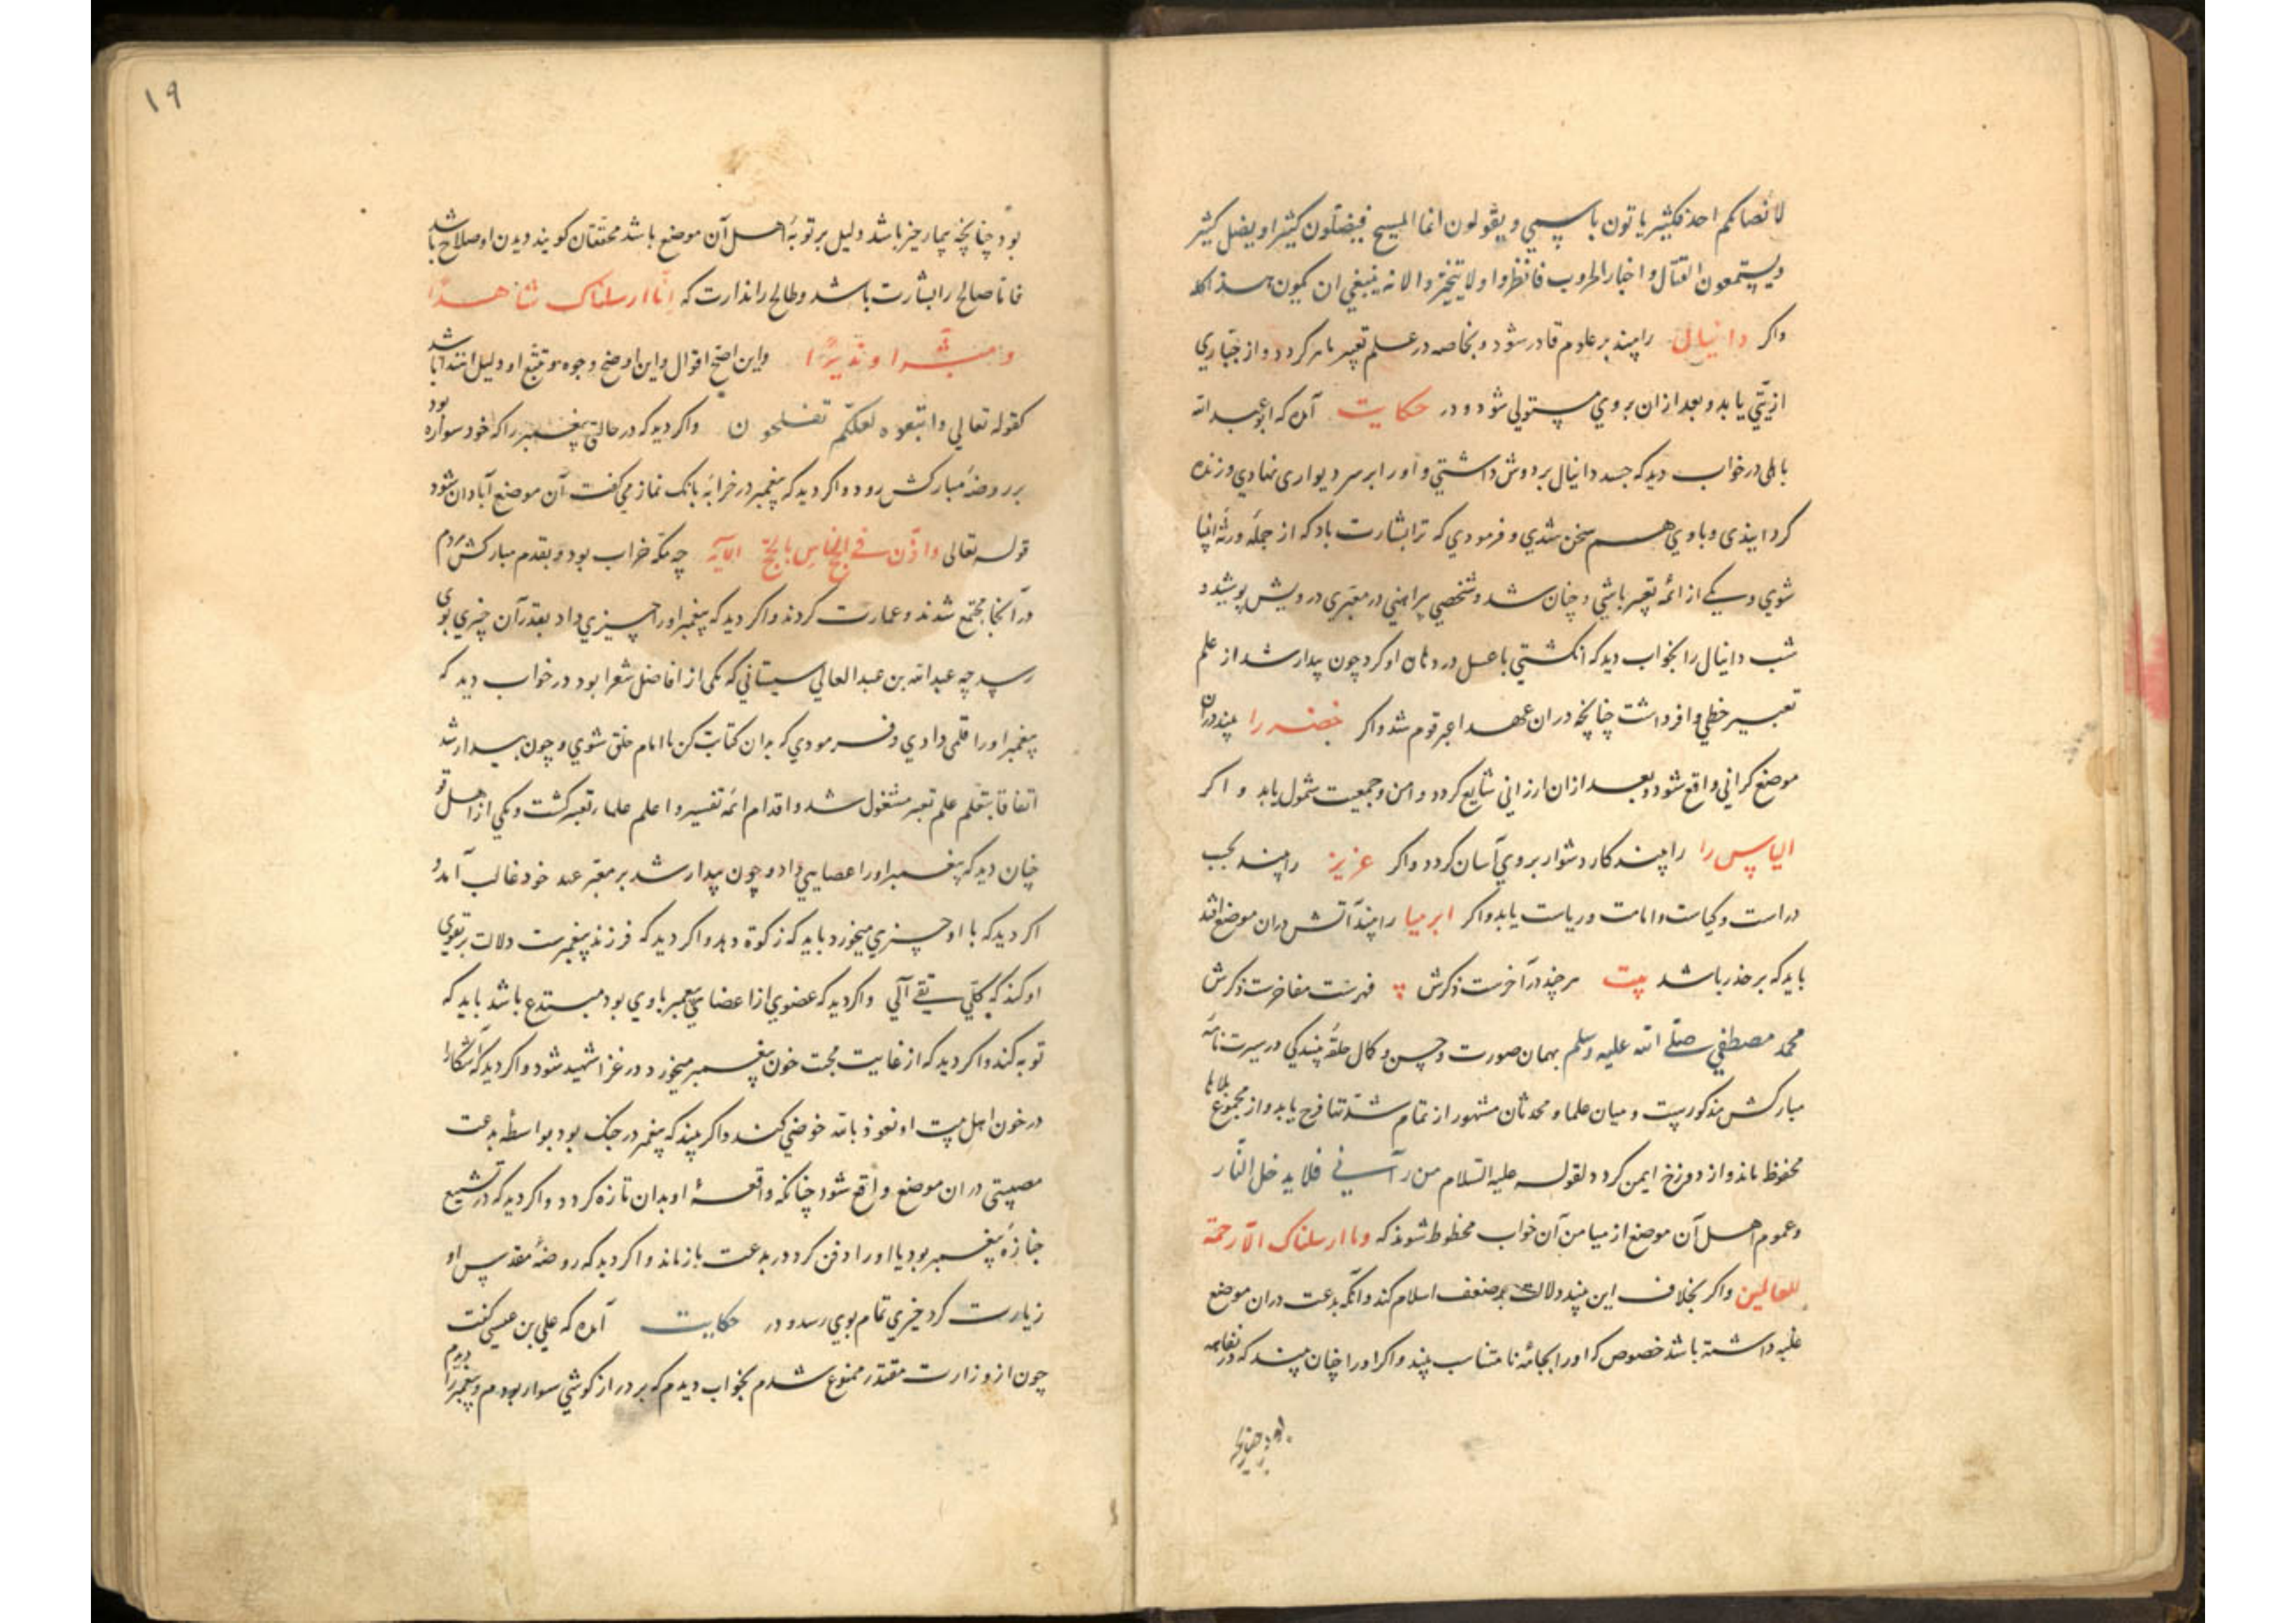 لا نصابکم احذ فکثیر یاتون باسمی و یقولون انما المسیح فیضلون کثیرا و یضل کثیر
ویستمعون القتال و اخبار الحروب فانظروا و لا تتحیروا لانه ینبغی ان یکون هذا کله
واکر دانیال را بیند بر علوم قادر شود و بخاصه در علم تعبیر ماهر کردد و از جباری
ازیتی یابد و بعد ازان بروی مستولی شود و در حکایت آمده که ابو عبد الله
باهلی در خواب دید که جسد دانیال بر دوش داشتی و اورا بر سر دیواری نهادی و زنده
کردانیذی و باوی هم سخن شدی و فرمودی که ترا بشارت باد که از جمله ورثه انبیا
شوی و یکی از ائمه تعبیر باشی و چنان شد و شخصی پیراهنی در معبری درویش پوشید و
شب دانیال را بخواب دید که انکشتی با عسل در دهان او کرد چون بیدار شد از علم
تعبیر حظی وافر داشت چنانچه دران عهد اعبر قوم شد واکر خضر را بیند دران
موضع کرانی واقع شود و بعد ازان ارزانی شایع کردد و امن و جمعیت شمول یابد و اکر
الیاس را را بیند کار دشوار بروی آسان کردد واکر عزیز را بیند بحب
دراست و کیاست و امانت و ریاست یابد واکر ابرمیا را بیند آتش دران موضع افتد
باید که بر حذر باشد بیت هر چند در آخرست ذکرش پ فهرست مفاخرست ذکرش
محمد مصطفی صلی الله علیه وسلم بهمان صورت و حسن و کمال حلقه بندکی در سیرت نامه
مبارکش مذکورست و میان علما و محدثان مشهور از تمام شدتها فرح یابد و از مجموع بلاها
محفوظ ماند و از دوزخ ایمن کردد لقوله علیه السلام من رآنی فلا یدخل النار
وعموم اهل آن موضع از میامن آن خواب محظوظ شوند که وما ارسلناک الا رحمة
للعالمین واکر بخلاف این بیند دلالت بر ضعف اسلام کند و آنکه بدعت دران موضع
غلبه داشته باشد خصوص که اورا بجامه نامتناسب بیند واکر اورا چنان بیند که در
۱۹
بود چنانچه بیمار خیز باشد دلیل بر توبه اهل آن موضع باشد محققان کویند دیدن او صلاح باشد
فاما صالح را بشارت باشد و طالح را نذارت که انا ارسلناک شاهدا
و مبشرا و نذیرا و این اصح اقوال و این اوضح وجوه و تتبع او دلیل اهتدا باشد
کقوله تعالی واتبعوه لعلکم تفلحون واکر دید که در حالتی پیغمبر را که خود سواره بود
بر روضه مبارکش رود واکر دید که پیغمبر در خرابه بانک نماز می کفت آن موضع آبادان شود
قوله تعالی واذن فی الناس بالحج الآیه چه مکه خراب بود و بقدم مبارکش مردم
در آنجا مجتمع شدند و عمارت کردند واکر دید که پیغمبر اورا چیزی داد بقدر آن چیزی بوی
رسد چه عبد الله بن عبد العالی سیستانی که یکی از افاضل شعرا بود در خواب دید که
پیغمبر اورا قلمی دادی و فرمودی که بدان کتابت کن تا امام خلق شوی و چون بیدار شد
اتفاقا بتعلم علم تعبیر مشغول شد و اقدام ائمه تفسیر و اعلم علماء تعبیر کشت و یکی از اهل
چنان دید که پیغمبر اورا عصایی داد و چون بیدار شد بر معبر عهد خود غالب آمد و
اکر دید که با او چیزی میخورد باید که زکوة دهد واکر دید که فرزند پیغمبرست دلالت بر تقوی
او کند که کلّ تقی آلی واکر دید که عضوی از اعضای پیغمبر باوی بود مبتدع باشد باید که
توبه کند واکر دید که از غایت محبت خون پیغمبر میخورد در غزا شهید شود واکر دید که آشکارا
در خون اهل بیت او نعوذ بالله خوضی کند واکر بیند که پیغمبر در جنک بود بواسطه بدعت
مصیبتی دران موضع واقع شود چنانکه واقعه او بدان تازه کردد واکر دید که در تشییع
جنازه پیغمبر بود یا اورا دفن کرد در بدعت بازماند واکر دید که روضه مقدس او
زیارت کرد خیری تمام بوی رسد و در حکایت آمده که علی بن عیسی کفت
چون از وزارت مقتدر ممنوع شدم بخواب دیدم که بر دراز کوشی سوار بودم و پیغمبر را دیدم